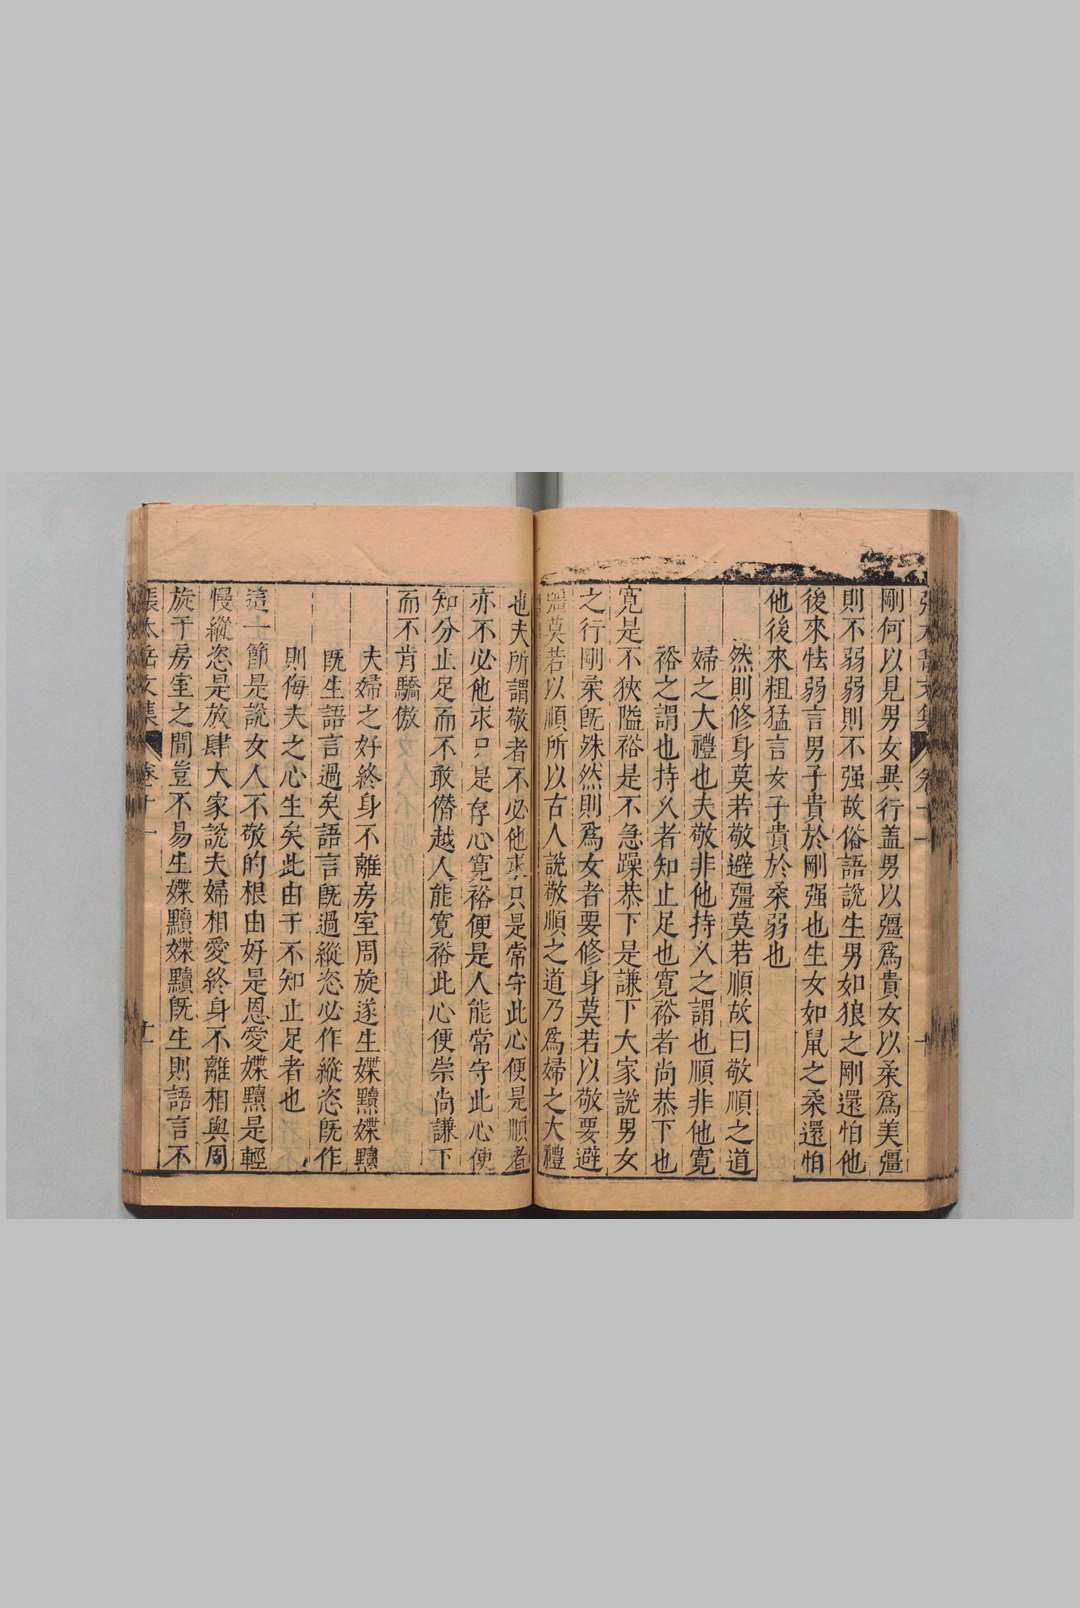 剛何以見男女異行盖男以彊爲貴女以柔爲美彊
則不弱弱則不强故俗語說生男如狼之剛還怕他
後來怯弱言男子貴於剛强也生女如鼠之柔還怕
他後來粗猛言女子貴於柔弱也
然則修身莫若敬避彊莫若順故曰敬順之道
婦之大禮也夫敬非他持乆之謂也順非他寛
裕之謂也持乆者知止足也寛裕者尚恭下也
寛是不狹隘裕是不急躁恭下是謙下大家說男女
之行剛柔旣殊然則爲女者要修身莫若以敬要避
彊莫若以順所以古人說敬順之道乃爲婦之大禮
也夫所謂敬者不必他求只是常守此心便是順者
亦不必他求只是存心寛裕便是人能常守此心便
知分止足而不敢僭越人能寛裕此心便崇尚謙下
而不肯驕傲
夫婦之好終身不離房室周旋遂生媟黷媟黷
旣生語言過矣語言旣過縱恣必作縱恣旣作
則侮夫之心生矣此由于不知止足者也
這一節是說女人不敬的根由好是恩愛媟黷是輕
慢縱恣是放肆大家說夫婦相愛終身不離相與周
旋于房室之間豈不易生媟黷媟黷旣生則語言不
張太岳文集 卷十一 十一